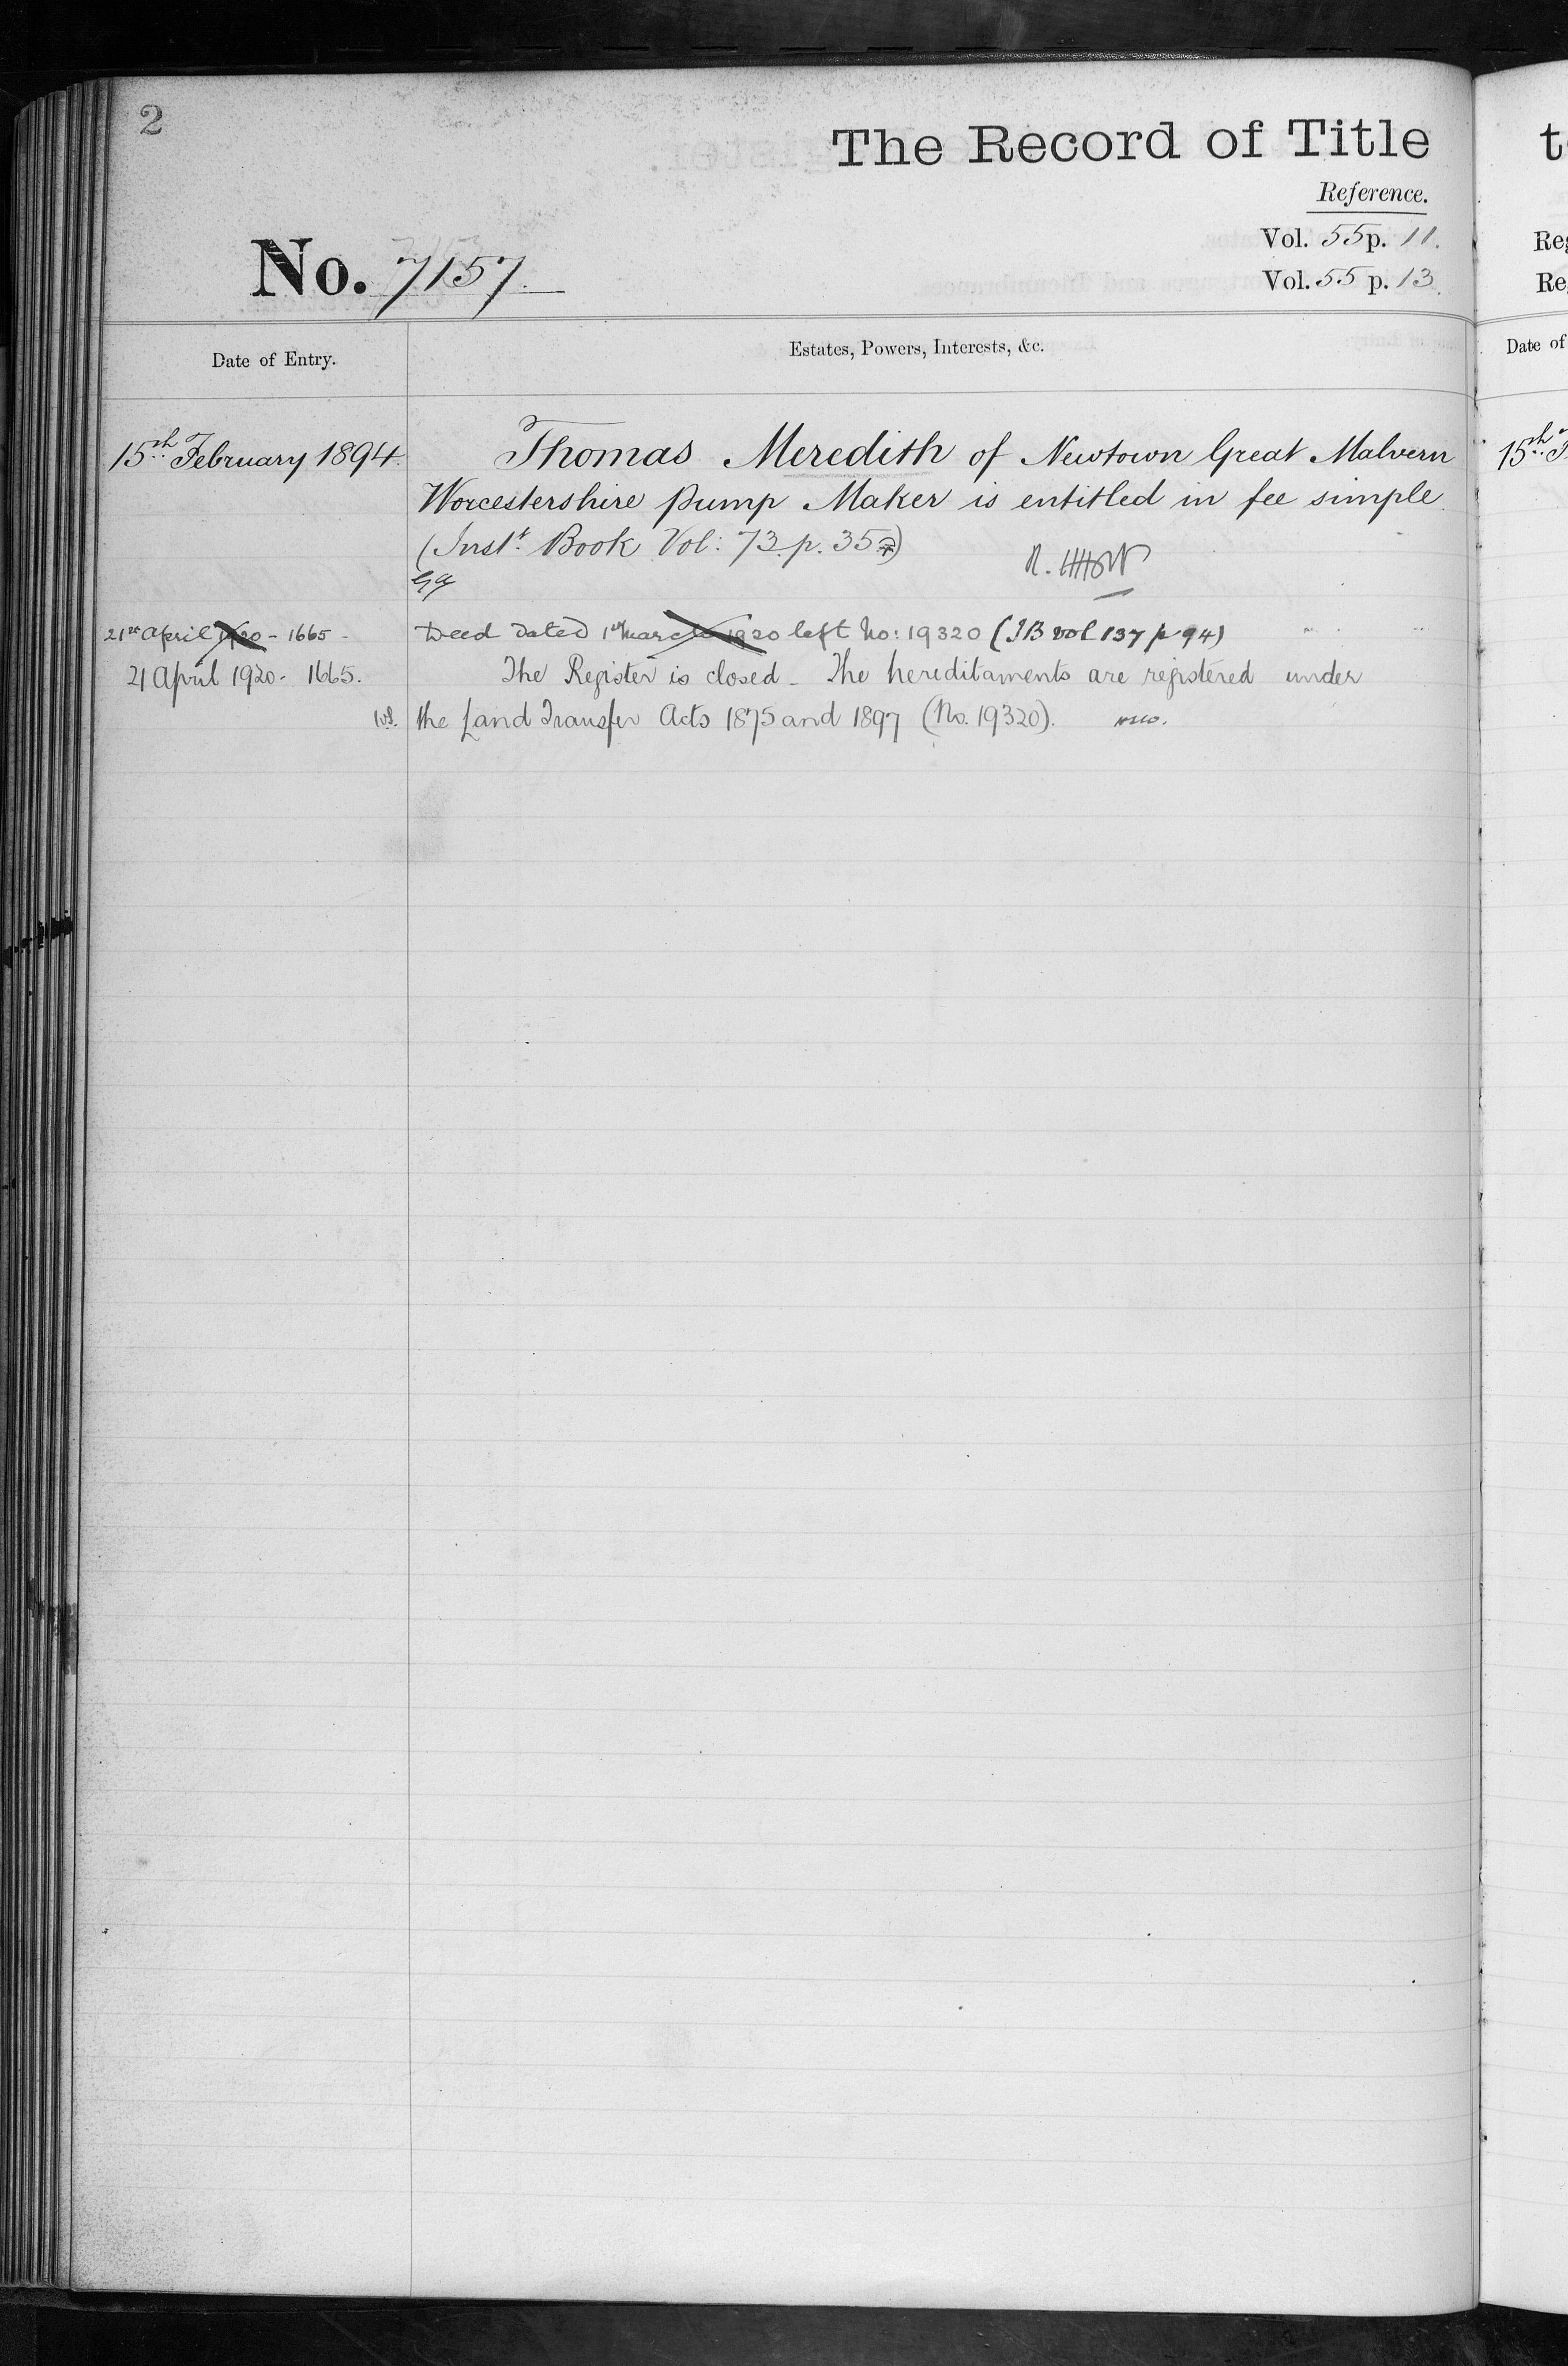 2
The Record of Title
Reference.
Vol. 55 p. 11.
No. 7157.
Vol. 55 p. 13.
Date of Entry.
Estates, Powers, Interests, &c.
15th February 1894.
Thomas Meredith of Newtown Great Malvern
Worcestershire Pump Maker is entitled in fee simple.
(Instt. Book Vol: 73. p. 35
21st April 1920 - 1665 -
Deed dated 1st March 1920 left No: 19320 (IB vol 137 p 94)
21 April 1920 - 1665.
The Register is closed - The hereditaments are registered under
the Land Transfer Acts 1875 and 1897 (No. 19320).
t
Re
Re
Date of
15th